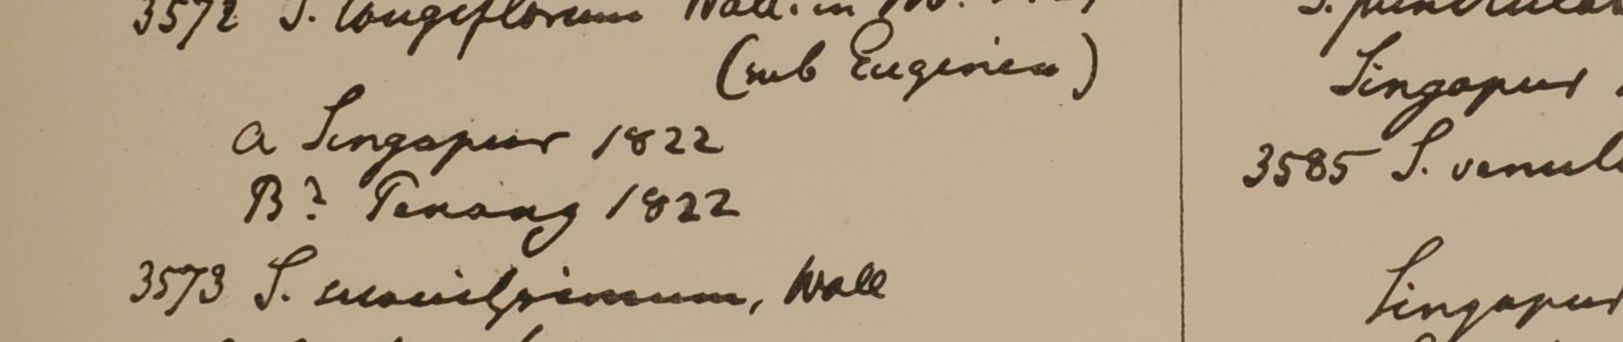 3572 S. longiflorum Wall. in
(sub Eugenia)
a Singapur 1822
B? Penang 1822
3573 S. , Wall
Singapur
3585 S. venul
Singapur